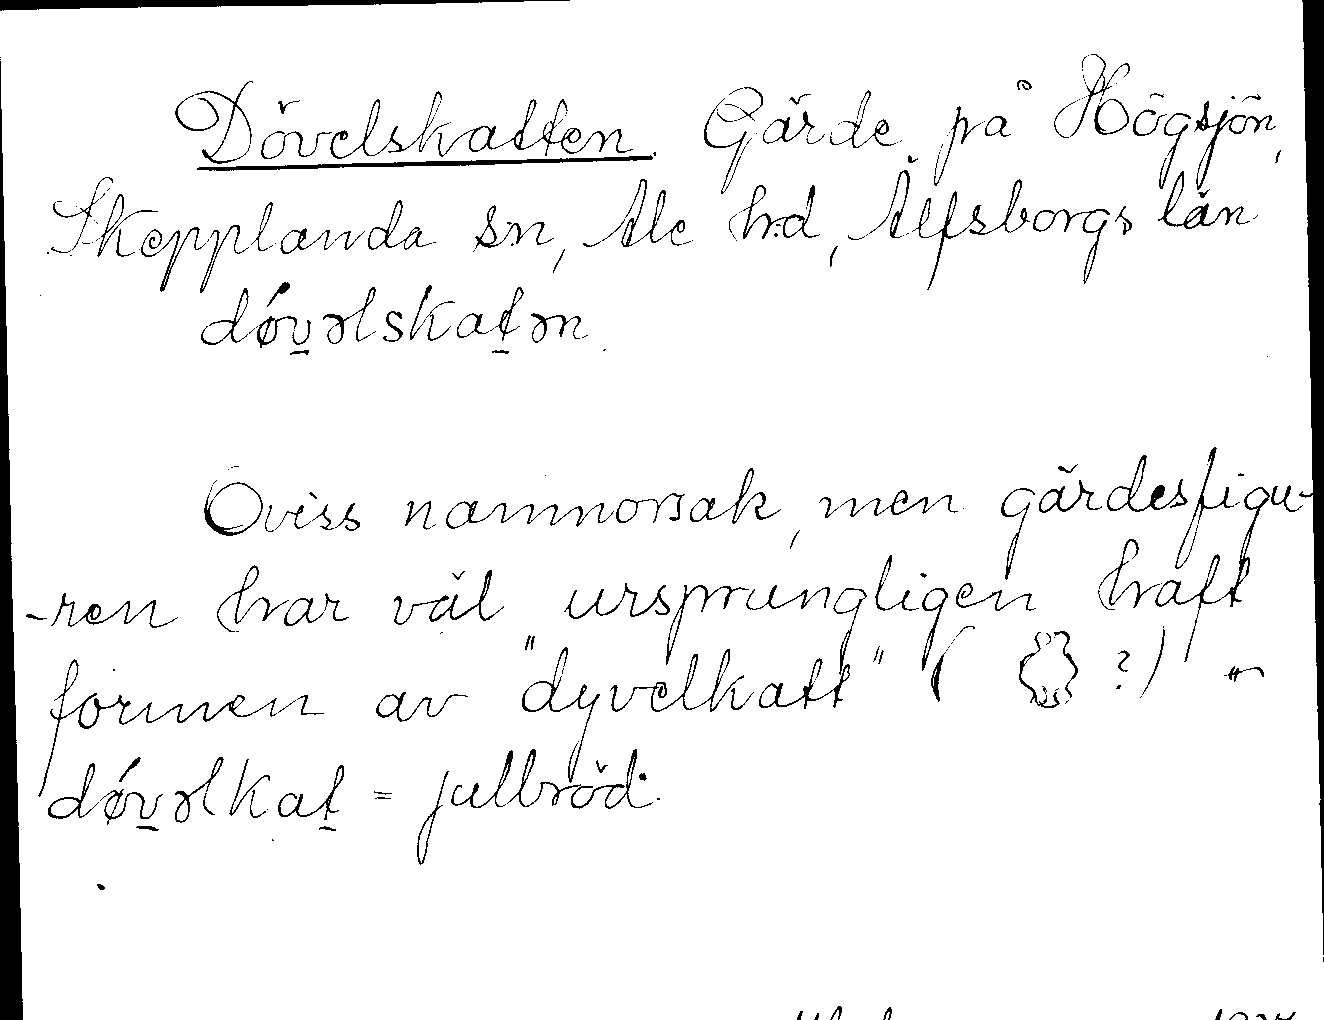 Dövelskatten. Gärde på Högsjön,
Skepplanda sn, Ale hd, Älfsborgs län
dǿv̲əlskat̲ən.
Oviss namnorsak, men gärdesfigu-
-ren har väl ursprungligen haft
formen av "dyvelkatt" ( ?)
dǿv̲əlkat̲ = julbröd.